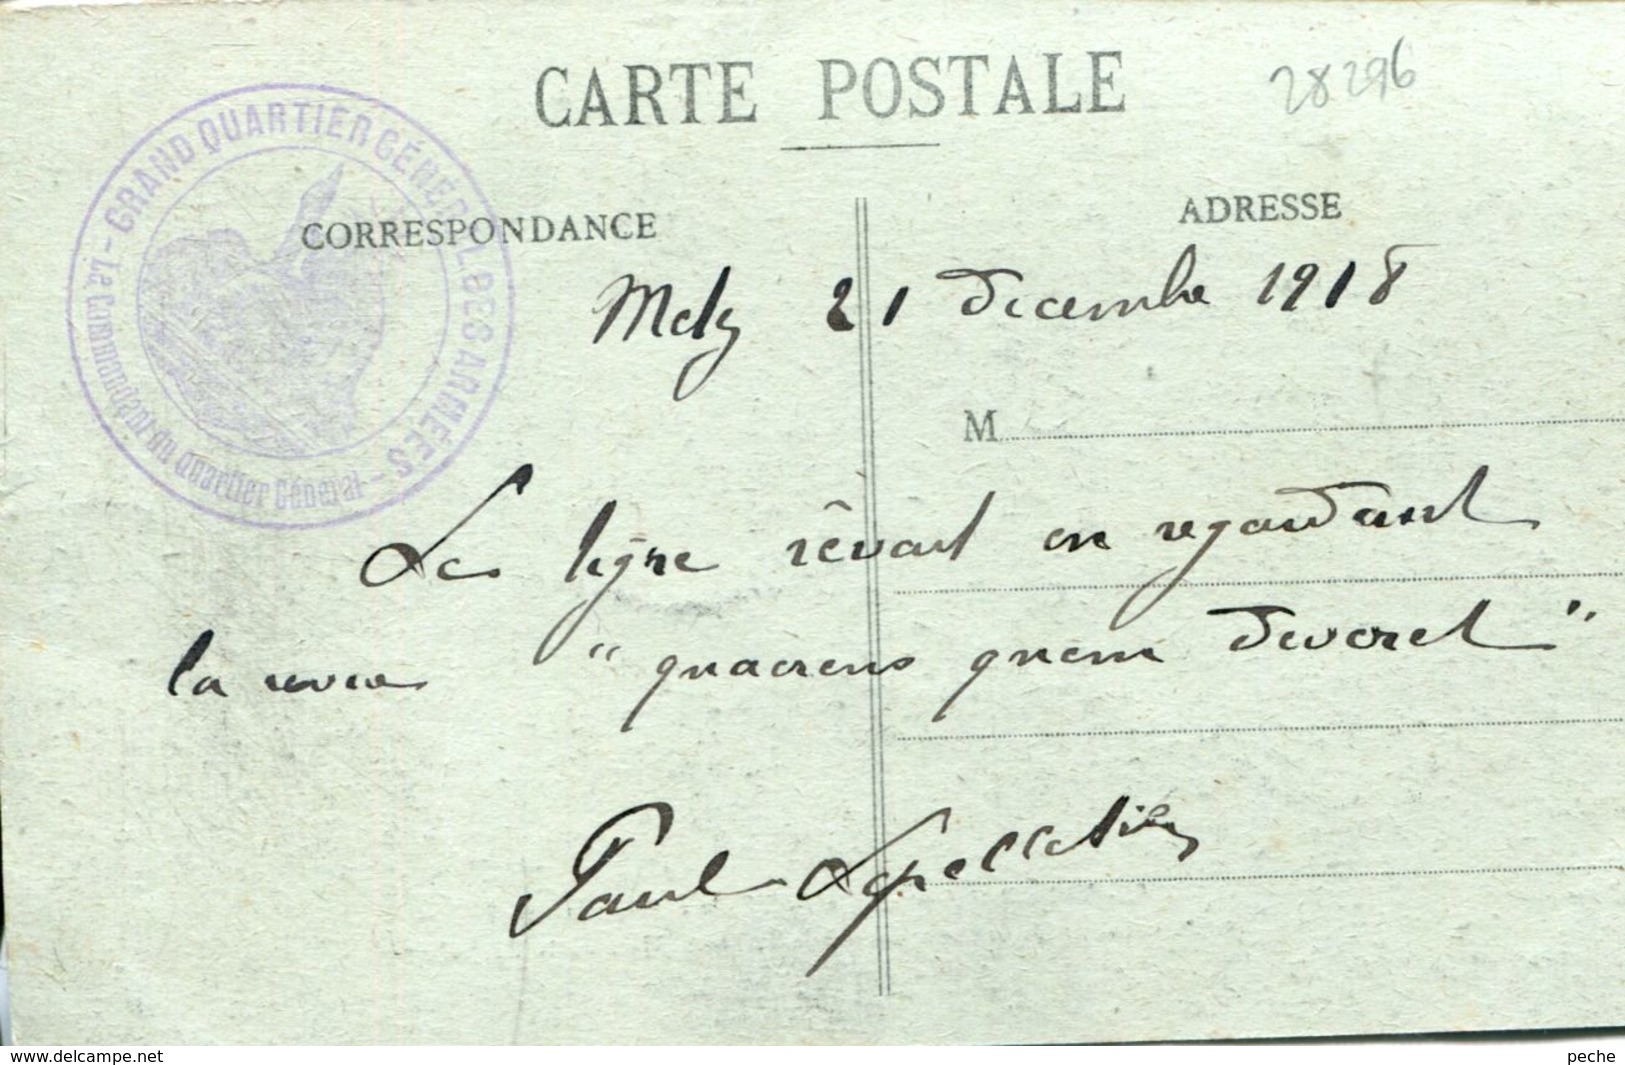 CARTE POSTALE
28296
GRAND QUARTIER GÉNÉRAL DES ARMÉES
Le Commandant du Quartier Général
CORRESPONDANCE
ADRESSE
Metz 21 décembre 1918
M
Le tigre rêvant en regardant
la revue "quaerens quem devoret"
Paul
www.delcampe.net
peche